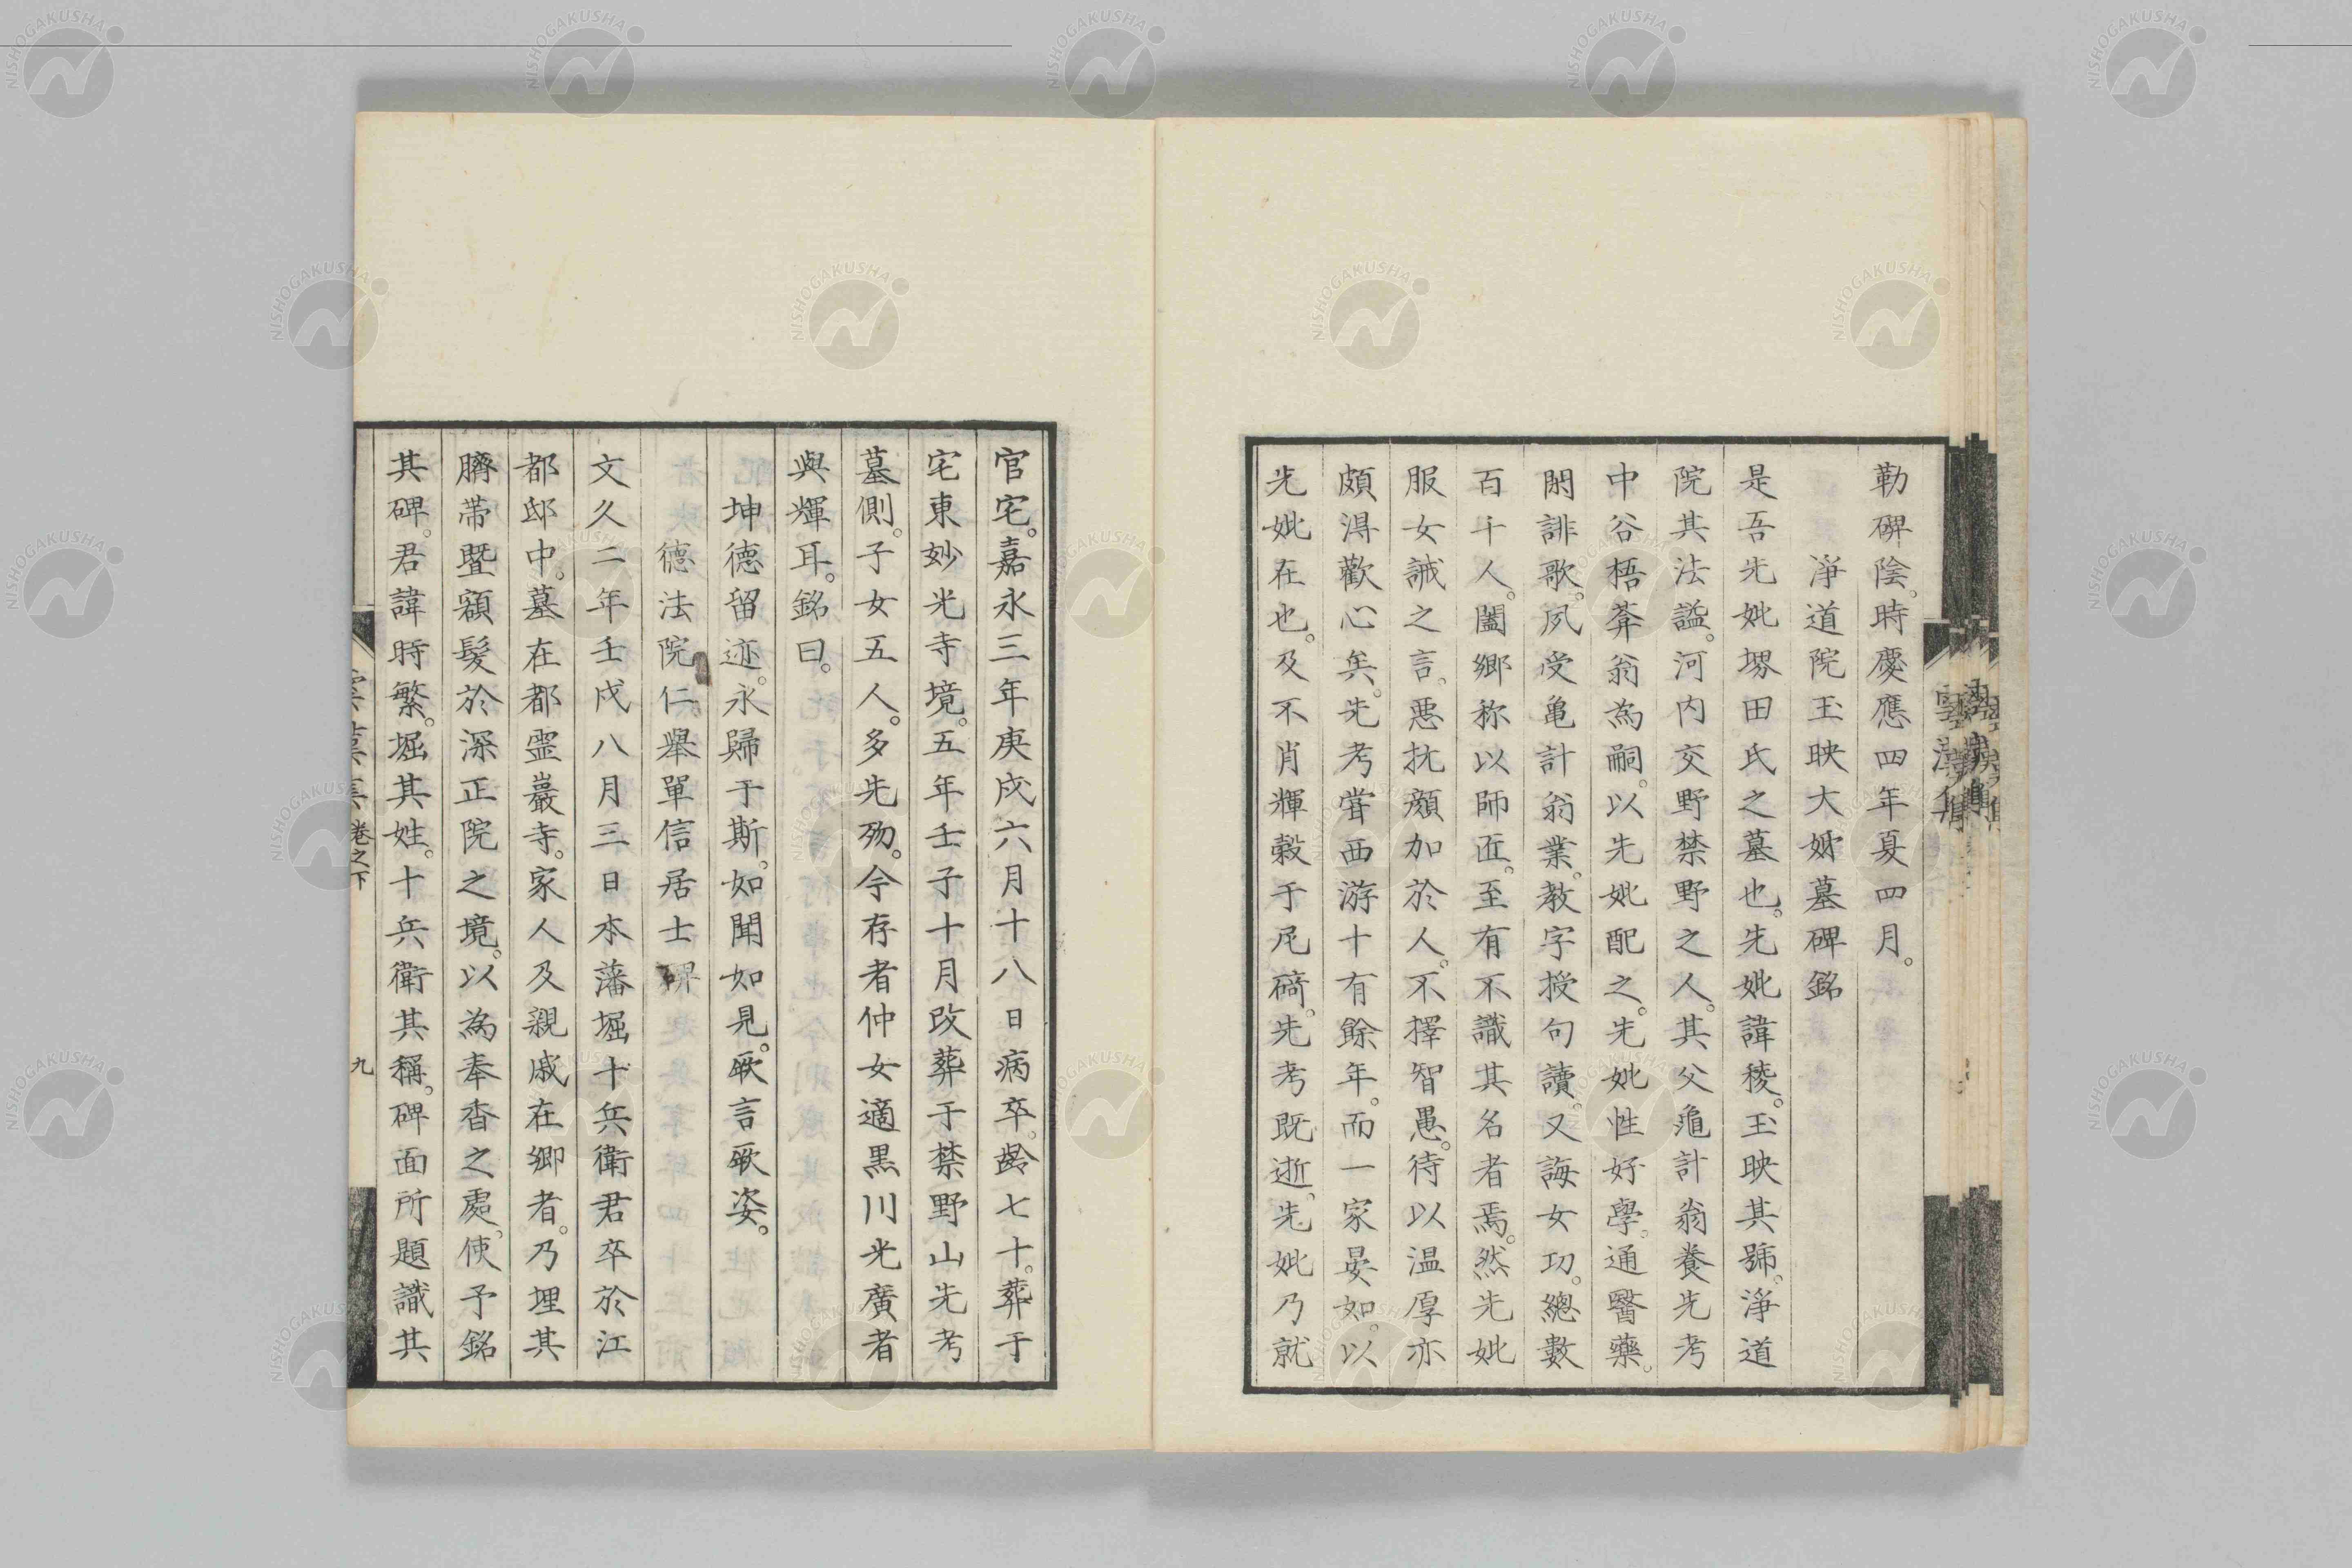 勒碑陰。時慶應四年夏四月。
淨道院玉映大姉墓碑銘
是吾先妣堺田氏之墓也。先妣諱稜。玉映其號。淨道
院其法謚。河内交野禁野之人。其父龜計翁養先考
中谷梧莾翁為嗣。以先妣配之。先妣性好學。通醫藥。
閑誹歌。夙受亀計翁業。教字授句讀。又誨女功。總數
百千人。闔鄉称以師匠。至有不識其名者焉。然先妣
服女誡之言。悪抗顔加於人。不擇智愚。待以温厚亦
頗得歡心矣。先考嘗西游十有餘年。而一家晏如。以
先妣在也。及不肖輝穀于尼碕。先考既逝。先妣乃就
官宅。嘉永三年庚戌六月十八日病卒。齡七十。葬于
宅東妙光寺境。五年壬子十月改葬于禁野山先考
墓側。子女五人。多先歾。今存者仲女適黒川光廣者
與輝耳。銘曰。
坤德留迹。永歸于斯。如聞如見。厥言厥姿。
德法院仁舉單信居士碑
文久二年壬戌八月三日本藩堀十兵衛君卒於江
都邸中。墓在都霊巖寺。家人及親戚在鄉者。乃埋其
臍帯暨額髮於深正院之境。以為奉香之處。使予銘
其碑。君諱時繁。堀其姓。十兵衛其稱。碑面所題識其
卷之下
九
NISHOGAKUSHA